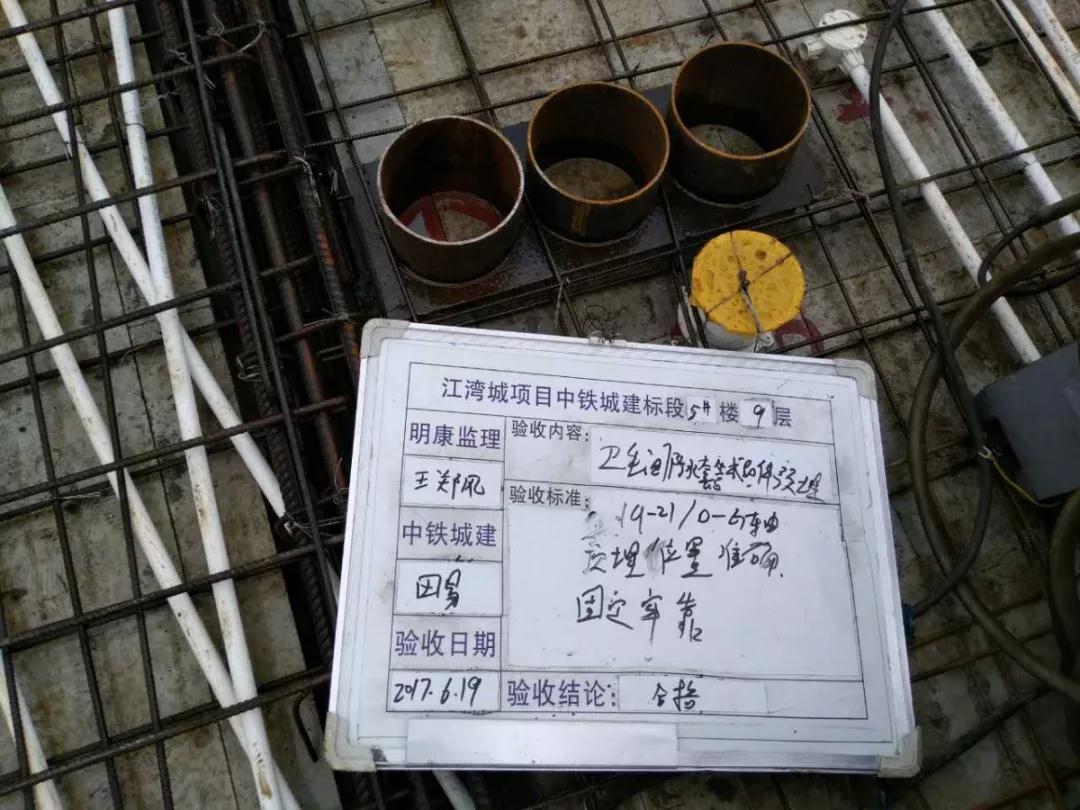 江湾城项目中铁城建标段5#楼9层
明康监理
验收内容:
卫生间防水套管预埋
王郑风
验收标准:
19-21/0-G轴
中铁城建
预埋位置准确
田易
固定牢靠
验收日期
2017.6.19
验收结论:
合格